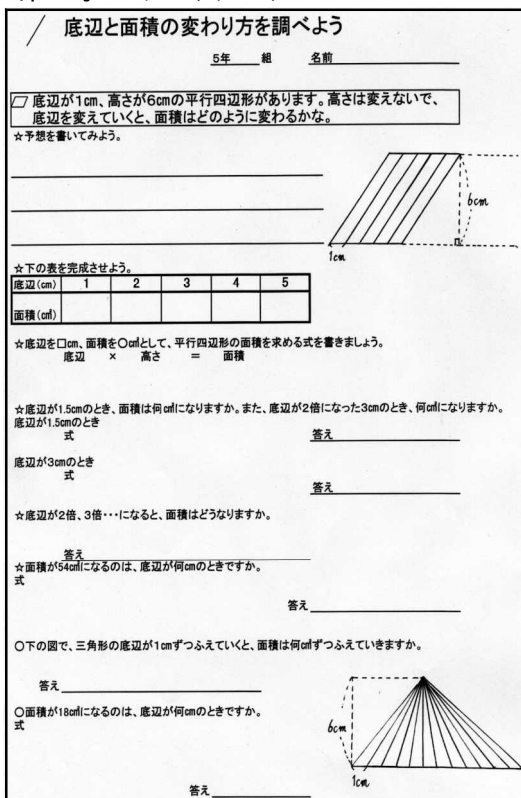 底辺と面積の変わり方を調べよう
5年 組 名前
底辺が1cm、高さが6cmの平行四辺形があります。高さは変えないで、
底辺を変えていくと、面積はどのように変わるかな。
☆予想を書いてみよう。
6cm
1cm
☆下の表を完成させよう。
底辺(cm) 1 2 3 4 5
面積(㎠)
☆底辺を□cm、面積を○㎠として、平行四辺形の面積を求める式を書きましょう。
底辺 × 高さ = 面積
☆底辺が1.5cmのとき、面積は何㎠になりますか。また、底辺が2倍になった3cmのとき、何㎠になりますか。
底辺が1.5cmのとき
式
答え
底辺が3cmのとき
式
答え
☆底辺が2倍、3倍・・・になると、面積はどうなりますか。
答え
☆面積が54㎠になるのは、底辺が何cmのときですか。
式
答え
○下の図で、三角形の底辺が1cmずつふえていくと、面積は何㎠ずつふえていきますか。
答え
○面積が18㎠になるのは、底辺が何cmのときですか。
式
6cm
1cm
答え